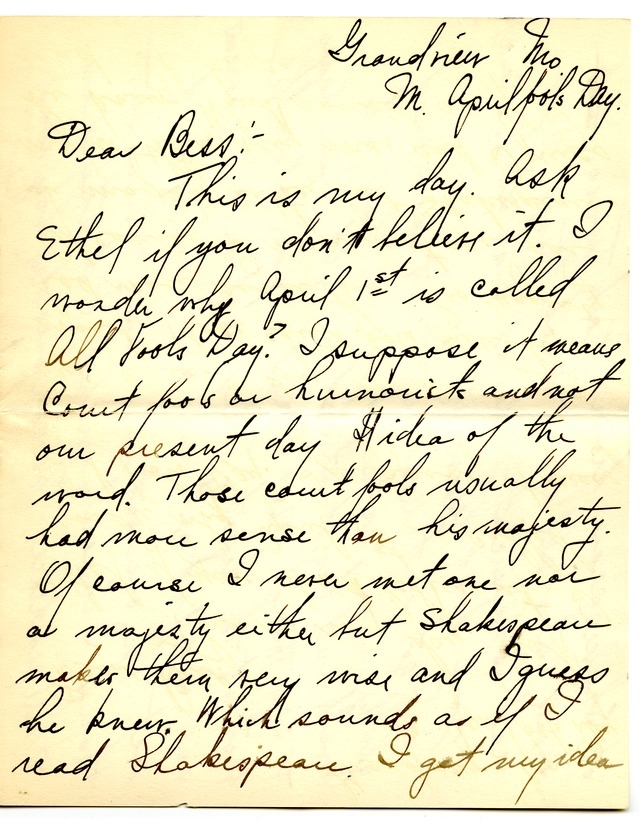 Grandview Mo
M. April fools Day.
Dear Bess:-
This is my day. Ask
Ethel if you don't believe it. I
wonder why April 1st is called
All Fools Day? I suppose it means
Court fools or humorists and not
our present day idea of the
word. Those court fools usually
had more sense than his majesty.
Of course I never met one nor
a majesty either but Shakespeare
makes them very wise and I guess
he knew. Which sounds as if I
read Shakespeare. I get my idea